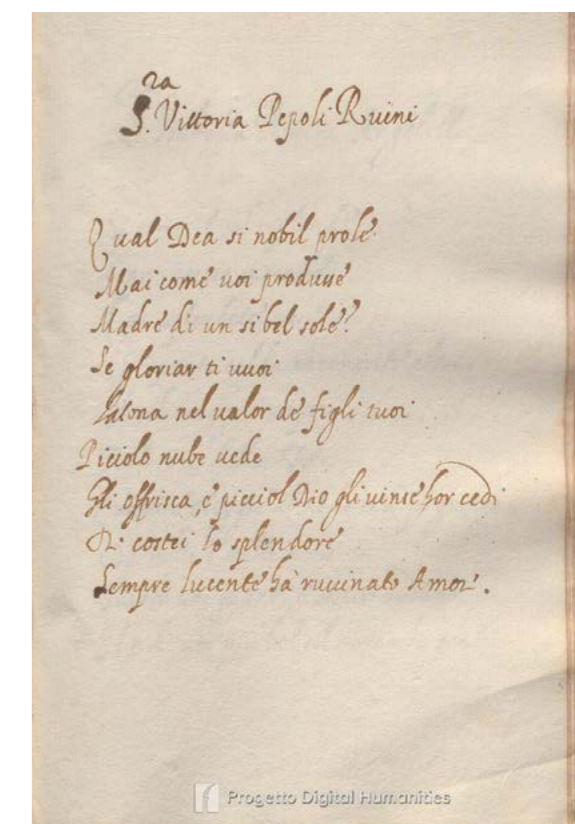 S.ra Vittoria Pepoli Ruini
Qual Dea si nobil prole
Mai come voi produsse
Madre di un si bel sole?
Se gloriar ti vuoi
Latona nel valor de figli tuoi
Piciolo nube vede
Gli offrisca, e picciol Dio gli vinse hor cedi
Di costei lo splendore
Sempre lucente hà ruuinato Amor.
Progetto Digital Humanities